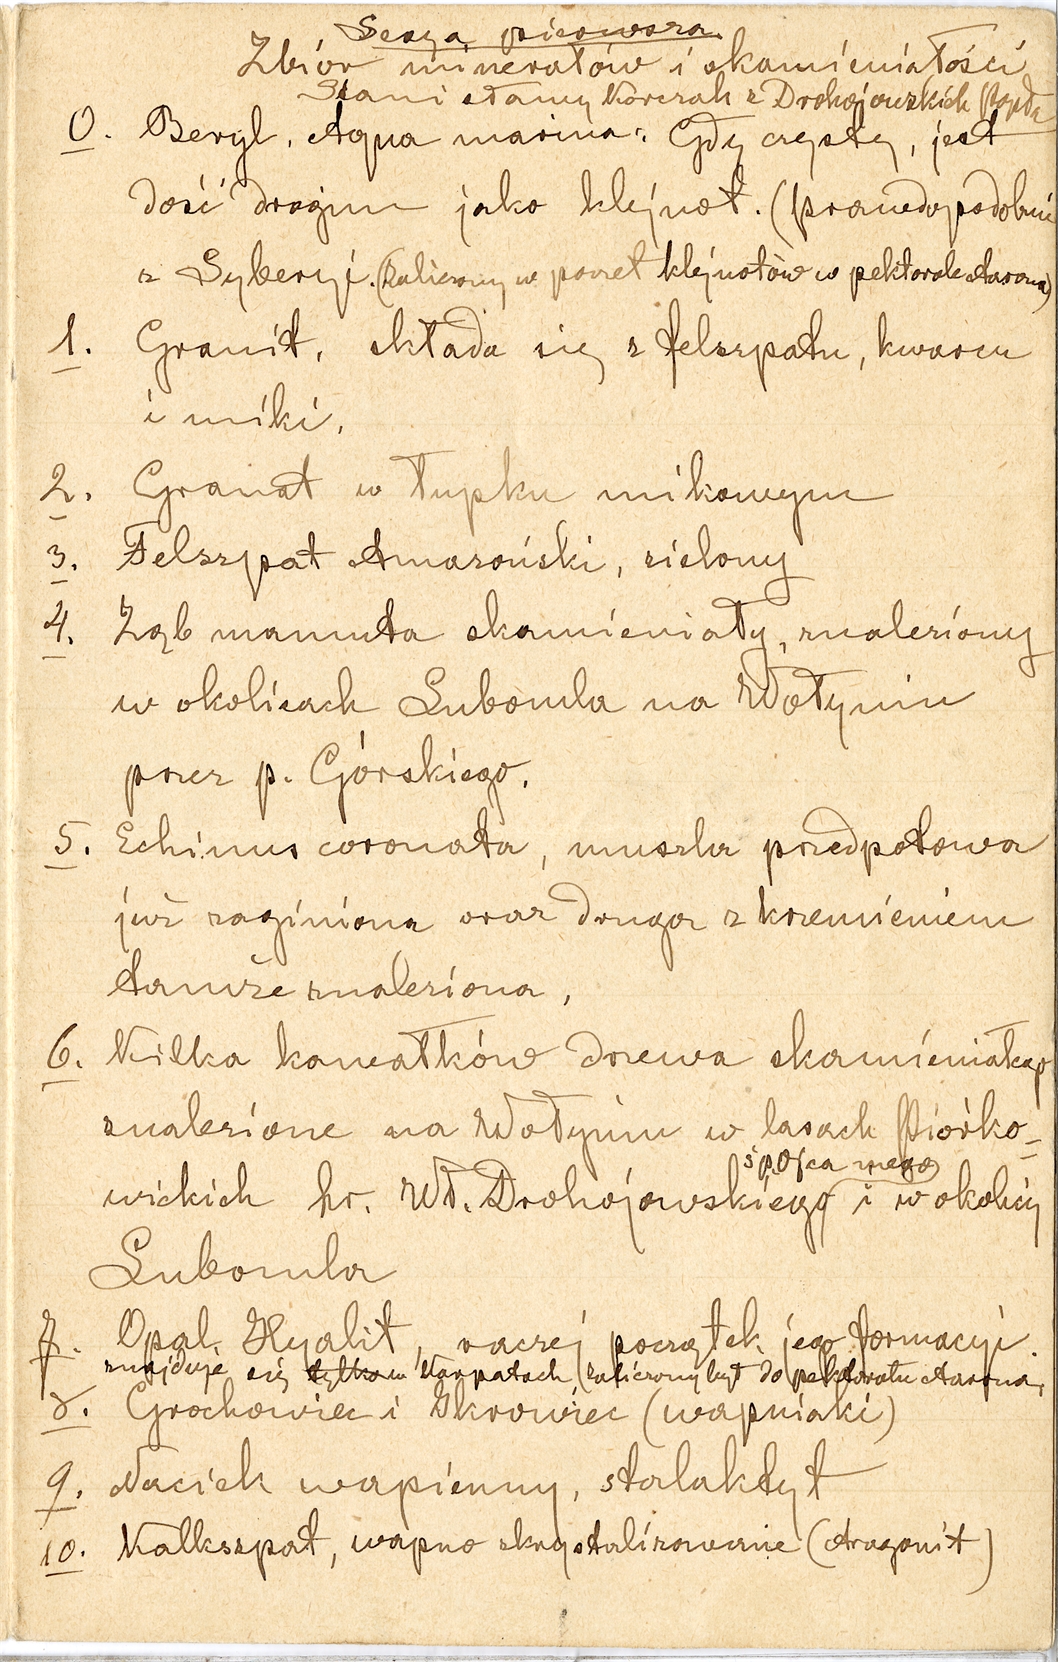 Seria pierwsza.
Zbiór minerałów i skamieniałości
Stanisławy Korczak z Drohojowskich
0. Beryl. Aqua marina. Gdy czysty, jest
dość drogim jako klejnot. (prawdopodobnie
z Syberyi. (zaliczony w poczet klejnotów w pektorale Aarona)
1. Granit, składa się z felszpatu, kwarcu
i miki.
2. Granat w łupku mikowym
3. Felszpat Amazoński, zielony
4. Ząb mamuta skamieniały, znaleziony
w okolicach Lubomla na Wołyniu
przez p. Górskiego.
5. Echinus coronata, muszla przedpotowa
już zaginiona oraz druga z krzemieniem
tamże znaleziona,
6. Kilka kawałków drzewa skamieniałego
znalezione na Wołyniu w lasach Piórko-
wickich hr. Wł. Drohojowskiego ś.p. Ojca mego i w okolicy
Lubomla
7. Opal. Hyalit, raczej początek jego formacyi.
znajduje się tylko w Karpatach (zaliczony był do pektorału Aarona,
8. Grochowiec i Ikrowiec (wapniaki)
9. Naciek wapienny, stalaktyt
10. Kalkszpat, wapno skrystalizowane (Aragonit)